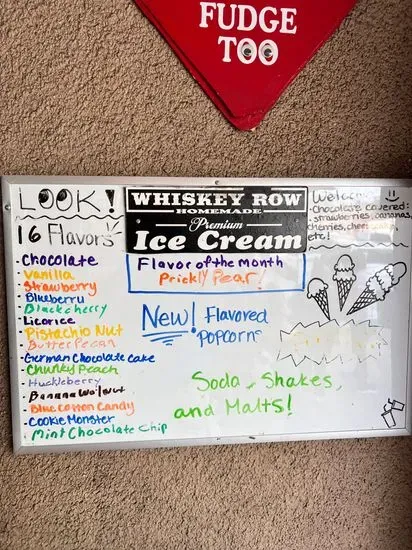 FUDGE
TOO
LOOK!
16 Flavors
- Chocolate
- Vanilla
- Strawberry
- Blueberry
- Blackcherry
- Licorice
- Pistachio Nut
- Butter Pecan
- German Chocolate cake
- Chunky Peach
- Huckleberry
- Banana Walnut
- Blue Cotton Candy
- Cookie Monster
- Mint Chocolate Chip
WHISKEY ROW
HOMEMADE
Premium
Ice Cream
Flavor of the Month
Prickly Pear!
New! Flavored
Popcorn
Soda, Shakes,
and Malts!
- Chocolate covered:
strawberries, bananas,
cherries,
etc!